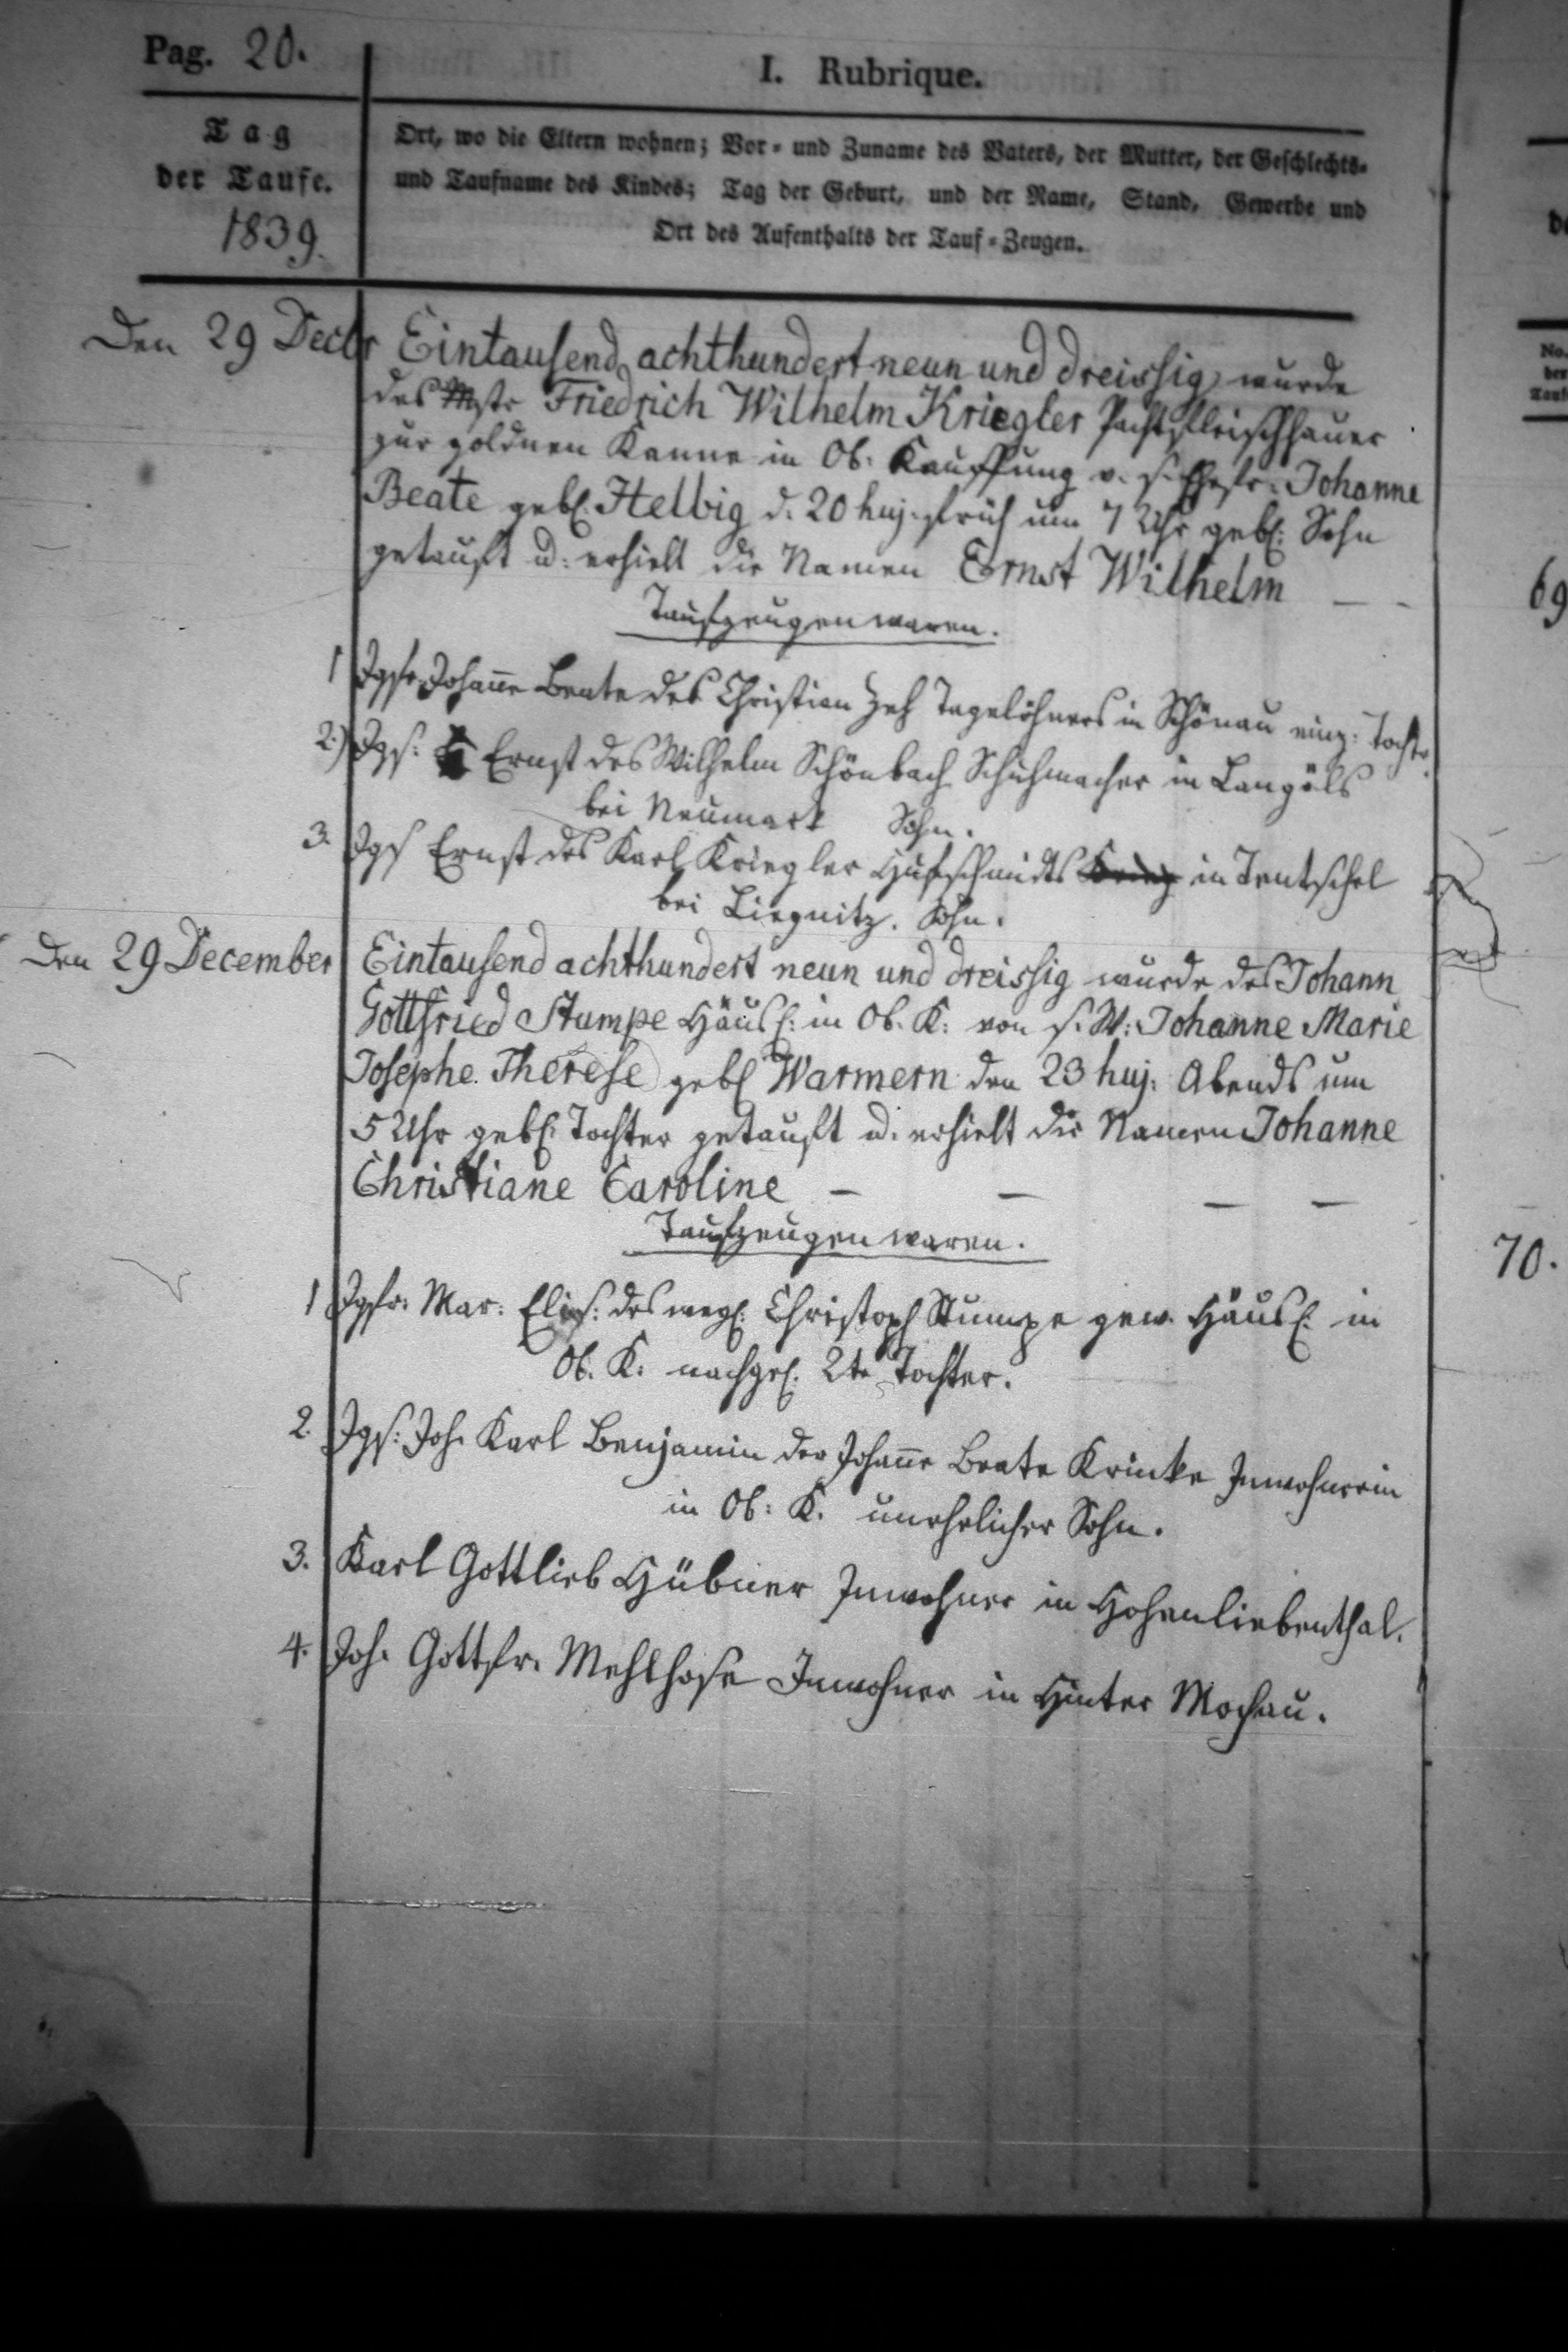 Pag. 20.
I. Rubrique.
Tag
der Taufe.
1839.
Ort, wo die Eltern wohnen; Vor- und Zuname des Vaters, der Mutter, der Geschlechts-
und Taufname des Kindes; Tag der Geburt, und der Name, Stand, Gewerbe und
Ort des Aufenthalts der Tauf-Zeugen.
Den 29 Decbr Eintausend achthundert neun und dreissig wurde
des Mstr Friedrich Wilhelm Kriegler Pachtfleischhauer
zur goldnen Kanne in Ob. Kauffung v. s. Ehefr. Johanne
Beate gebl. Helbig d. 20 huj. früh um 7 Uhr gebl. Sohn
getauft u. erhielt die Namen Ernst Wilhelm — -
Taufzeugen waren.
1 Jgfr Johañe Beate des Christian Zeh Tagelöhners in Schönau einz. Tochter.
2.) Jgs. Ernst des Wilhelm Schönbach Schuhmacher in Langöls
bei Neumark Sohn.
3. Jgs Ernst des Karl Kriegler Hufschmidts in Tentschel
bei Liegnitz. Sohn.
Den 29 December Eintausend achthundert neun und dreissig wurde des Johann
Gottfried Stumpe Häusl. in Ob. K. von s. W. Johanne Marie
Josephe Therese gebl Warmern den 23 huj. Abends um
5 Uhr gebl. Tochter getauft u. erhielt die Namen Johanne
Christiane Caroline — — — —
Taufzeugen waren.
1 Jgfr. Mar. Elis. des weyl. Christoph Stumpe gew. Häusl. in
Ob. K. nachgel. 2te Tochter.
2. Jgs. Joh. Karl Benjamin der Johañe Beate Krinke Inwohnerin
in Ob. K. unehelicher Sohn.
3. Karl Gottlieb Hübner Inwohner in Hohenliebenthal.
4. Joh. Gottfr. Mehlhose Inwohner in Hinter Mochau.
No.
der
Tauf
69
70.